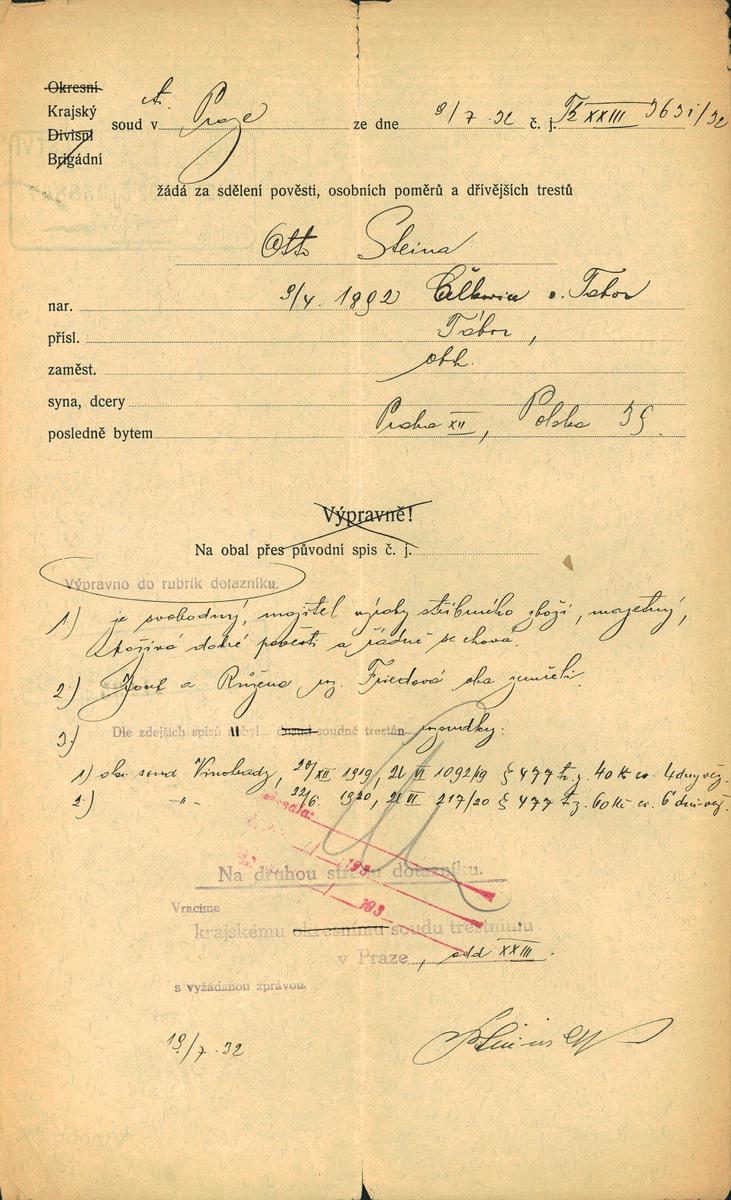 Okresní
Krajský
Divisní
Brigádní
soud v tr. Praze ze dne 9/7.32 č. j. Tk XXIII 3631/32
žádá za sdělení pověsti, osobních poměrů a dřívějších trestů
Otto Steina
nar. 9/4. 1892 o. Tábor
přísl. Tábor,
zaměst. obch.
syna, dcery
posledně bytem Praha XII, Polská 35.
Výpravně!
Na obal přes původní spis č. j.
Výpravno do rubrik dotazníku.
1) je svobodný, majitel výroby stříbrného zboží, majetný,
požívá dobré pověsti a řádně se chová.
2.) Josef a Růžena roz. Friedová oba zemřeli.
3.) Dle zdejších spisů byl soudně trestán
1) okr. soud Vinohrady, 20/XII 1919, U VI 1092/19 § 477 tr. z. 40 K 4 dny věz.
2.) -"- 22/6. 1920, U VI 217/20 § 477 tr. z. 60 Kč 6 dnů věz.
193
Na druhou stranu dotazníku.
193
Vracíme
krajskému okresnímu soudu trestnímu
v Praze, odd XXIII.
s vyžádanou zprávou.
19/7.32